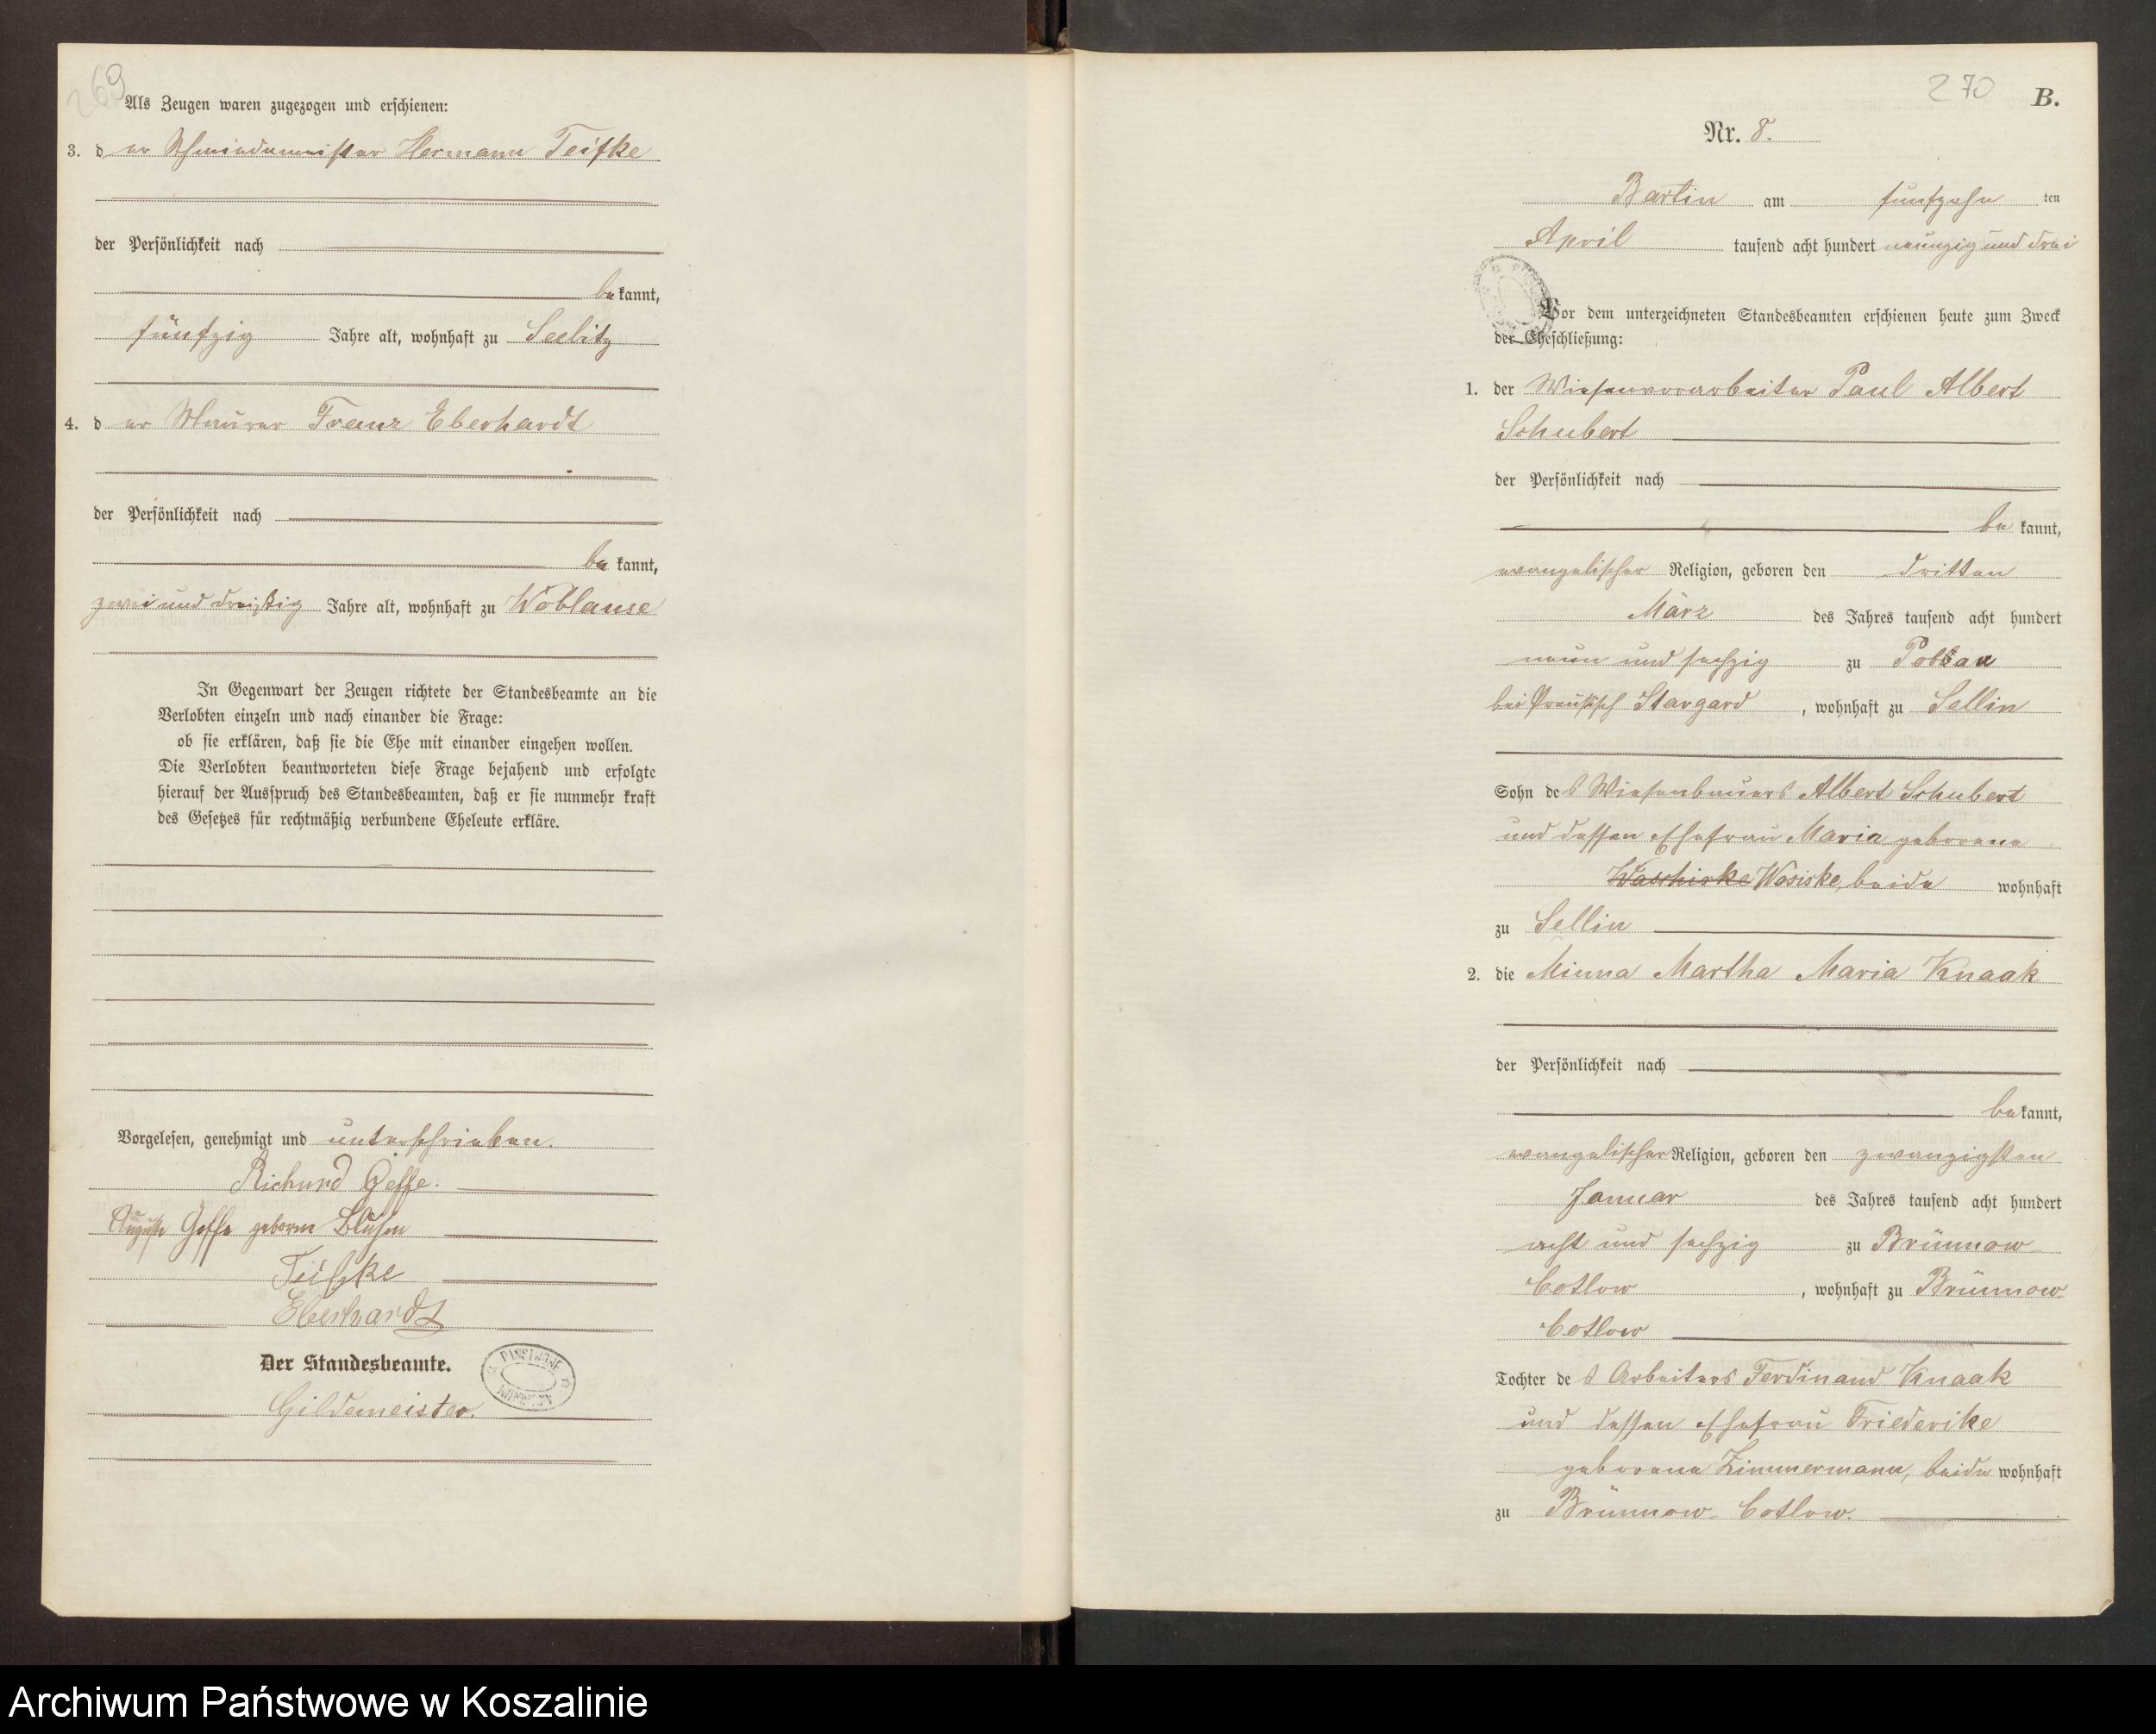 269
Als Zeugen waren zugezogen und erschienen:
3. der Schmiedemeister Hermann Teifke
der Persönlichkeit nach
bekannt,
fünfzig Jahre alt, wohnhaft zu Seelitz
4. der Maurer Franz Eberhardt
der Persönlichkeit nach
bekannt,
zwei und dreißig Jahre alt, wohnhaft zu Woblanse
In Gegenwart der Zeugen richtete der Standesbeamte an die
Verlobten einzeln und nach einander die Frage:
ob sie erklären, daß sie die Ehe mit einander eingehen wollen.
Die Verlobten beantworteten diese Frage bejahend und erfolgte
hierauf der Ausspruch des Standesbeamten, daß er sie nunmehr kraft
des Gesetzes für rechtmäßig verbundene Eheleute erkläre.
Vorgelesen, genehmigt und unterschrieben.
Richard
Auguste geborene
Teifke
Eberhardt
Der Standesbeamte.
Gildemeister.
270
B.
Nr. 8.
Bartin am fünfzehn ten
April tausend acht hundert neunzig und drei
Vor dem unterzeichneten Standesbeamten erschienen heute zum Zweck
der Eheschließung:
1. der Wiesenvorarbeiter Paul Albert
Schubert
der Persönlichkeit nach
bekannt,
evangelischer Religion, geboren den dritten
März des Jahres tausend acht hundert
neun und sechzig zu
bei Preußisch Stargard, wohnhaft zu Sellin
Sohn des Wiesenbauers Albert Schubert
und dessen Ehefrau Maria geborene
Waschiske Wosiske, beide wohnhaft
zu Sellin
2. die Minna Martha Maria Knaak
der Persönlichkeit nach
bekannt,
evangelischer Religion, geboren den zwanzigsten
Januar des Jahres tausend acht hundert
acht und sechzig zu Brünnow-
Cotlow, wohnhaft zu Brünnow
Cotlow
Tochter des Arbeiters Ferdinand Knaak
und dessen Ehefrau Friederike
geborene Zimmermann, beide wohnhaft
zu Brünnow-Cotlow.
Archiwum Państwowe w Koszalinie